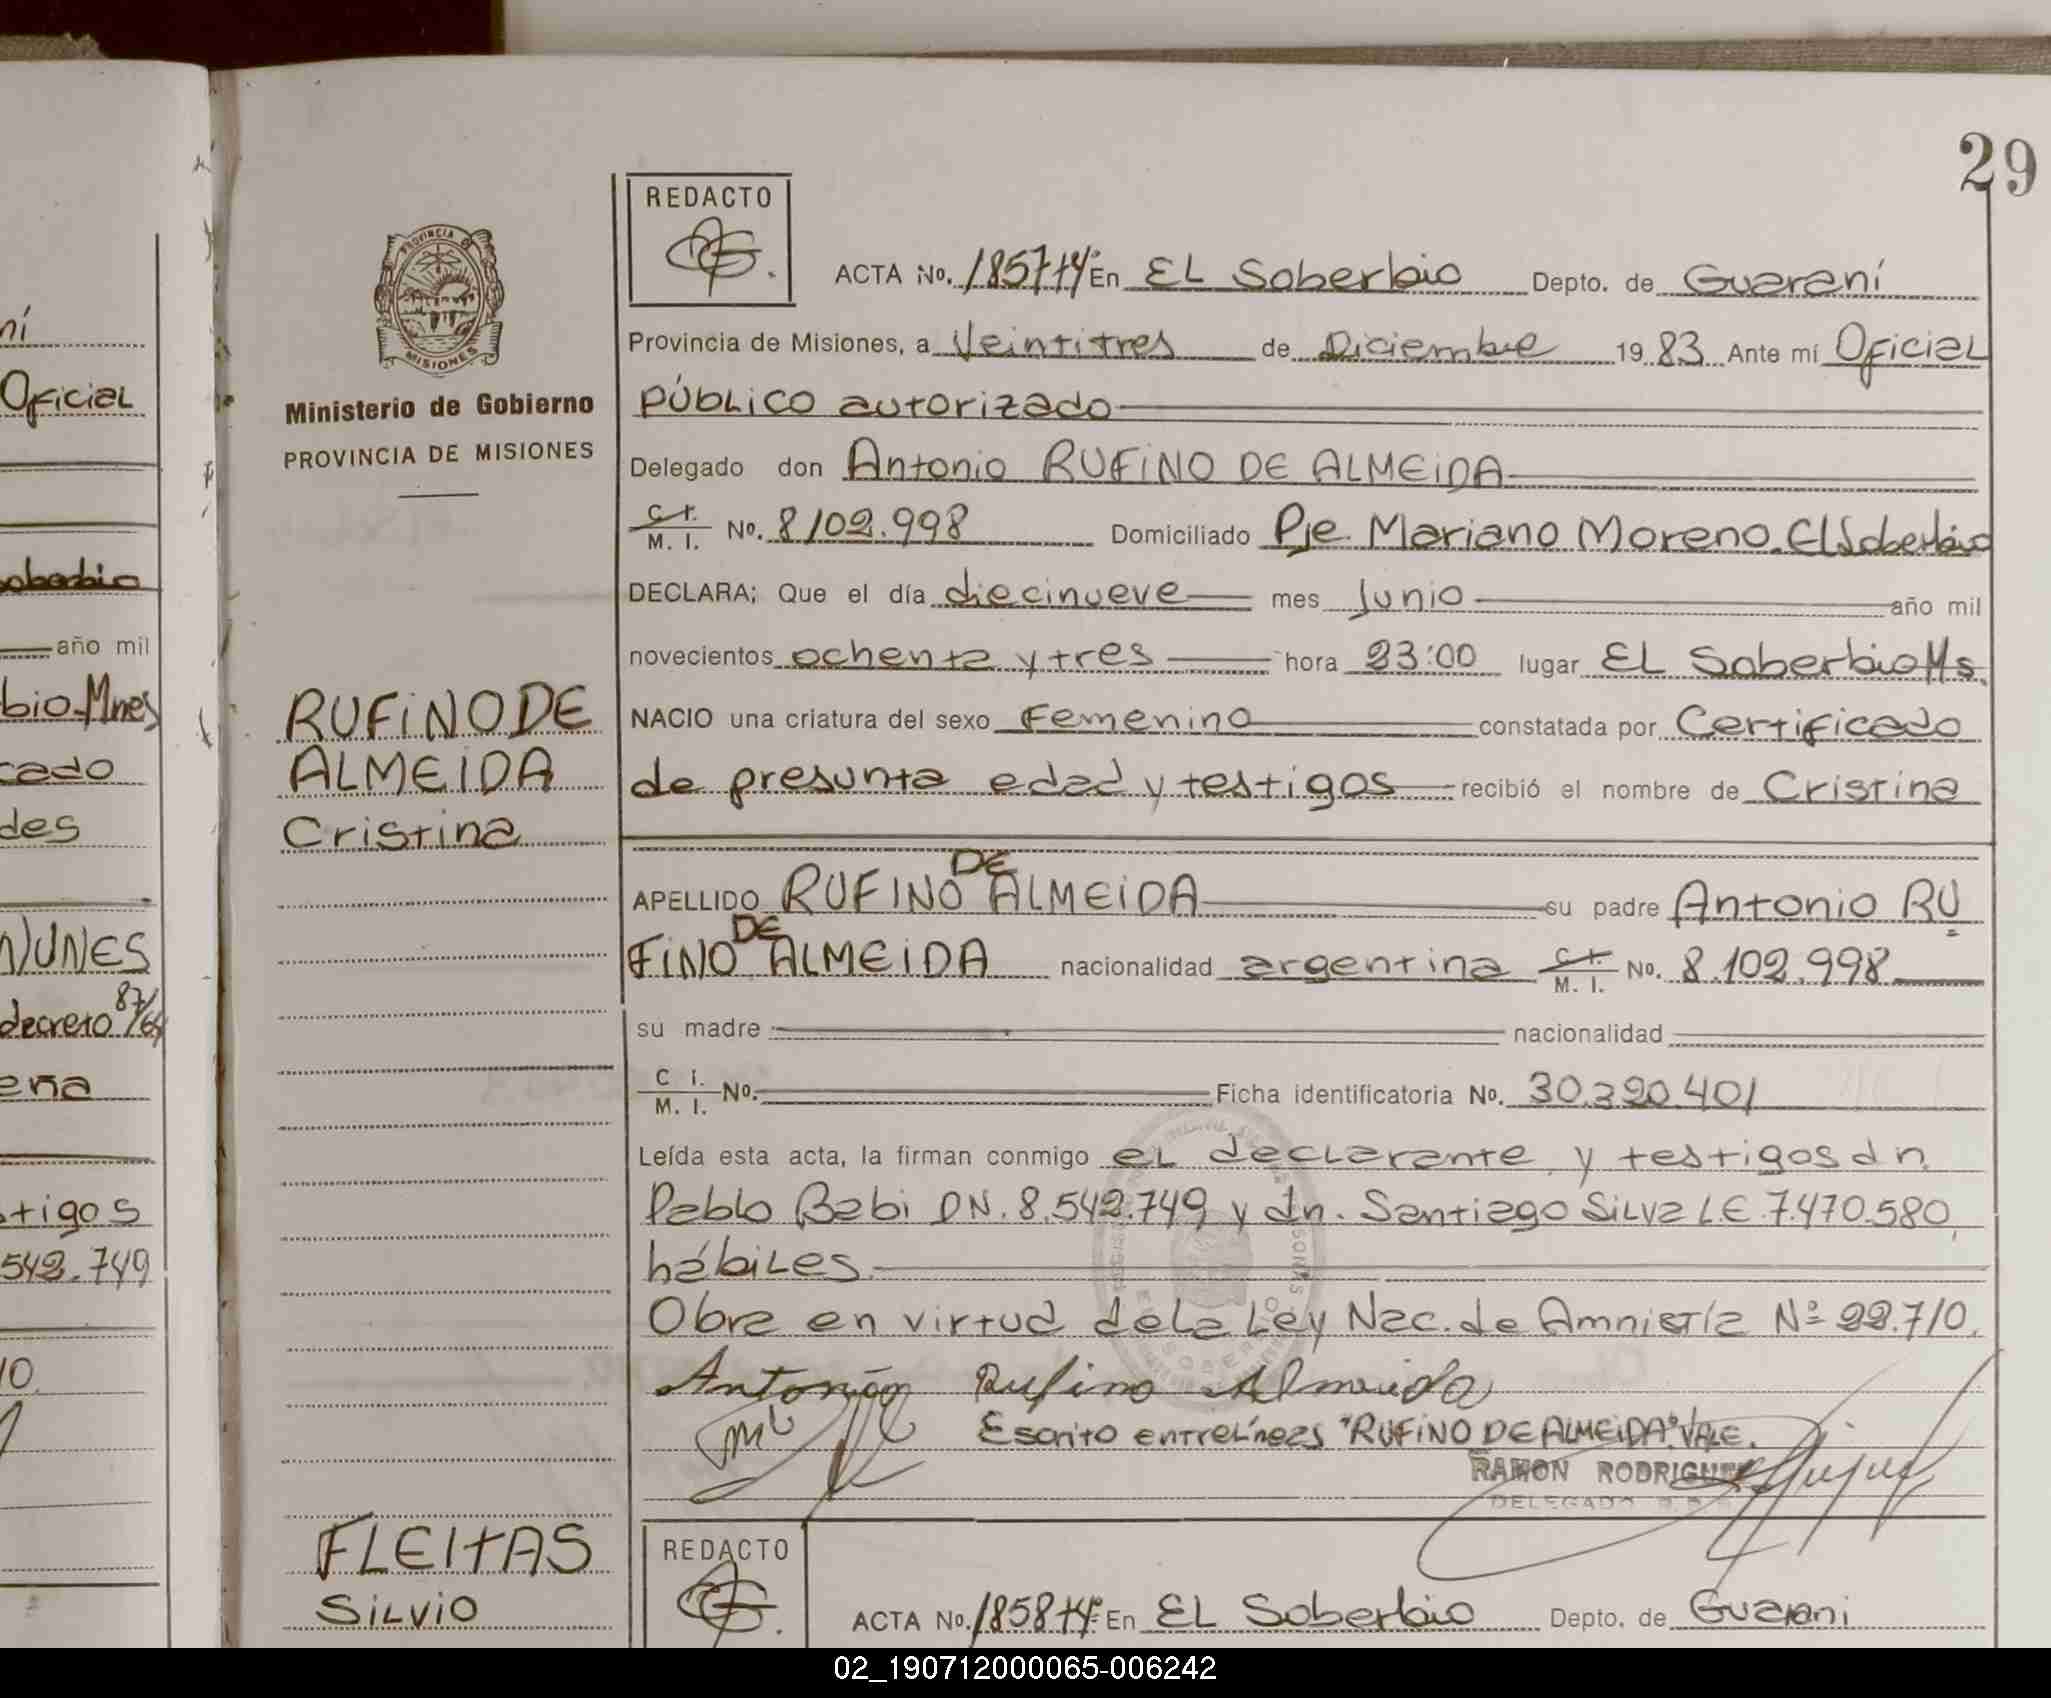 29
REDACTO
ACTA No. 1857 t4º En EL Soberbio Depto. de Guaraní
Provincia de Misiones, a Veintitres de Diciembre 1983 Ante mí Oficial
PÚBLICO autorizado
Delegado don Antonio RUFINO DE ALMEIDA
C. I. M. I. No. 8102.998 Domiciliado Pje. Mariano Moreno. El Soberbio
DECLARA; Que el día diecinueve mes Junio año mil
novecientos ochenta y tres hora 23:00 lugar EL Soberbio Ms.
NACIO una criatura del sexo Femenino constatada por Certificado
de presunta edad y testigos recibió el nombre de Cristina
APELLIDO RUFINO DE ALMEIDA su padre Antonio RU
FINO DE ALMEIDA nacionalidad argentina C. I. M. I. No. 8.102.998
su madre nacionalidad
C I. M. I. No. Ficha identificatoria No. 30.320.401
Leída esta acta, la firman conmigo eL decLarante y testigos dn.
Pablo Babi DN. 8.542.749 y dn. Santiago SiLva L.E 7.470.580,
hábiLes.
Obra en virtud de La Ley Nac. de Amnistía Nº 22.710.
Antonio Rufino Almeida
Escrito entreLíneas "RUFINO DE ALMEIDA". VALE.
RAMON RODRIGUEZ
DELEGADO
REDACTO
ACTA No. 1858 t4º En EL Soberbio Depto. de Guarani
PROVINCIA DE
MISIONES
Ministerio de Gobierno
PROVINCIA DE MISIONES
RUFINO DE
ALMEIDA
Cristina
FLEITAS
SiLvio
ní
Oficial
Soberbio
año mil
bio Mnes
cado
des
NUNES
decreto 87/
ena
stigos
542.749
10.
02_190712000065-006242